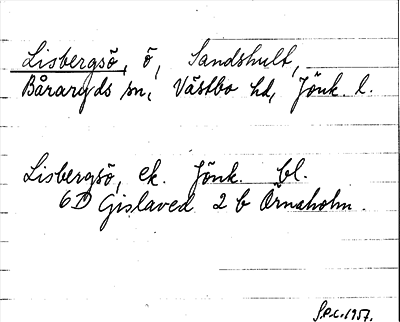 Lisbergsö, ö, Sandshult,
Båraryds sn, Västbo hd, Jönk. l.
Lisbergsö, ek. Jönk. bl.
6D Gislaved 2 b Örnaholm.
S.P.C. 1957.